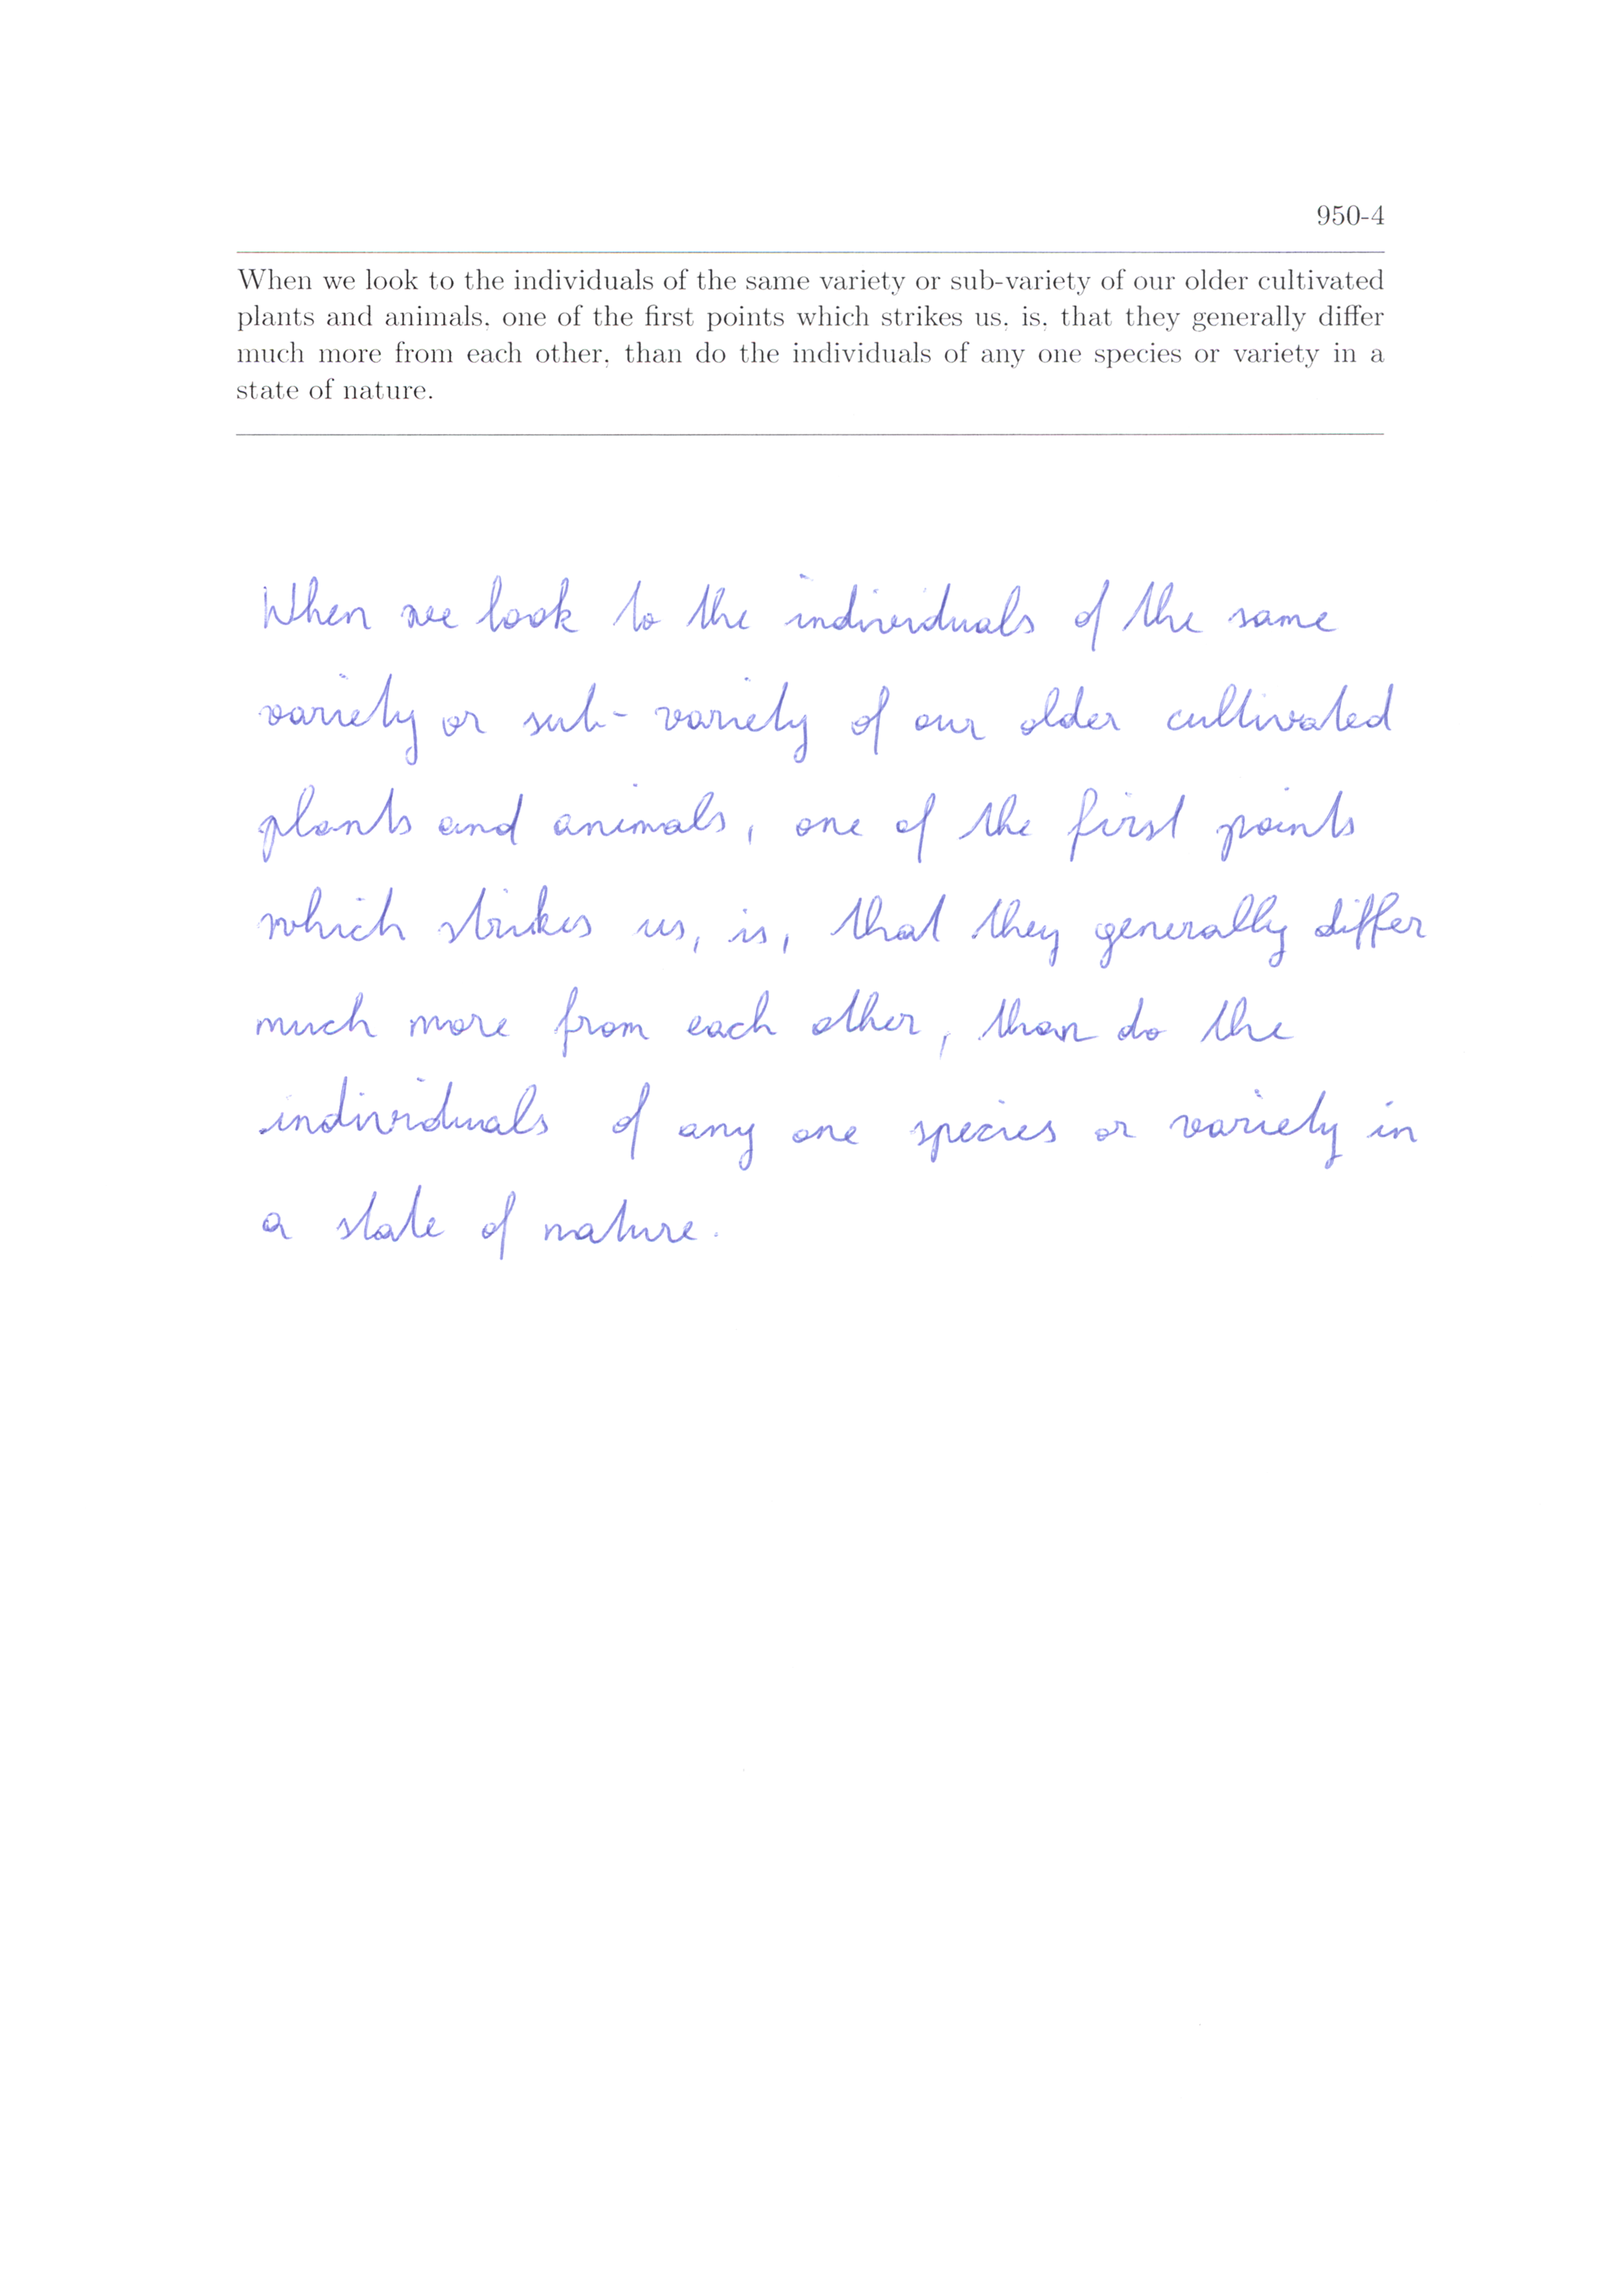 950-4
When we look to the individuals of the same variety or sub-variety of our older cultivated
plants and animals, one of the first points which strikes us, is, that they generally differ
much more from each other, than do the individuals of any one species or variety in a
state of nature.
When we look to the individuals of the same
variety or sub-variety of our older cultivated
plants and animals, one of the first points
which strikes us, is, that they generally differ
much more from each other, than do the
individuals of any one species or variety in
a state of nature.